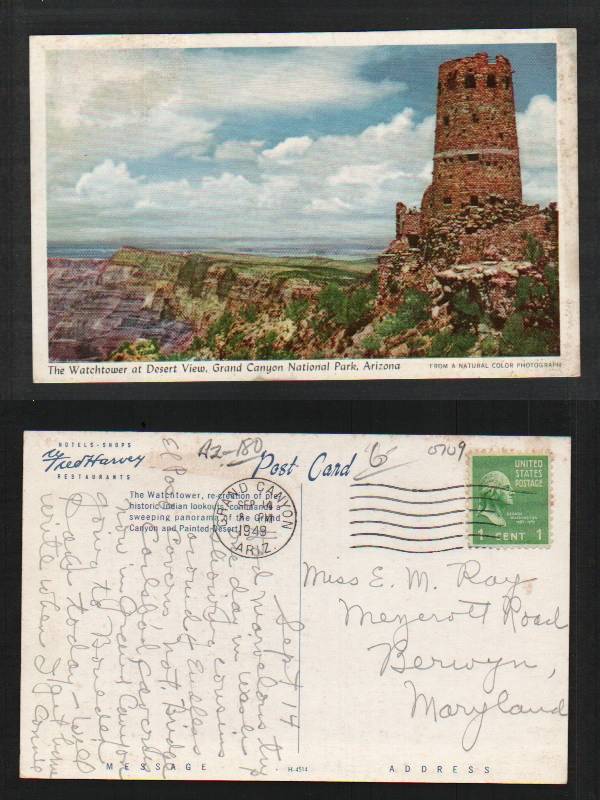 The Watchtower at Desert View, Grand Canyon National Park, Arizona
FROM A NATURAL COLOR PHOTOGRAPH
HOTELS - SHOPS
Fred Harvey
RESTAURANTS
AZ-180
Post Card
0709
The Watchtower, re-creation of pre-
historic Indian lookout, commands a
sweeping panorama of the Grand
Canyon and Painted Desert.
GRAND CANYON
SEP 14
PM
1949
ARIZ.
UNITED
STATES
POSTAGE
GEORGE
WASHINGTON
1 CENT 1
Miss E. M. Ray
Road
Berwyn,
Maryland
Sept 14
marvelous trip
day in
cousins
around Endless
Caverns, Nat. Bridge
Carlsbad Caverns
now in Grand Canyon
going to Boulder
Dam today - will
write when I get home
El
MESSAGE
H-4514
ADDRESS